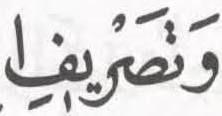 وَتَصْرِيفِ ا